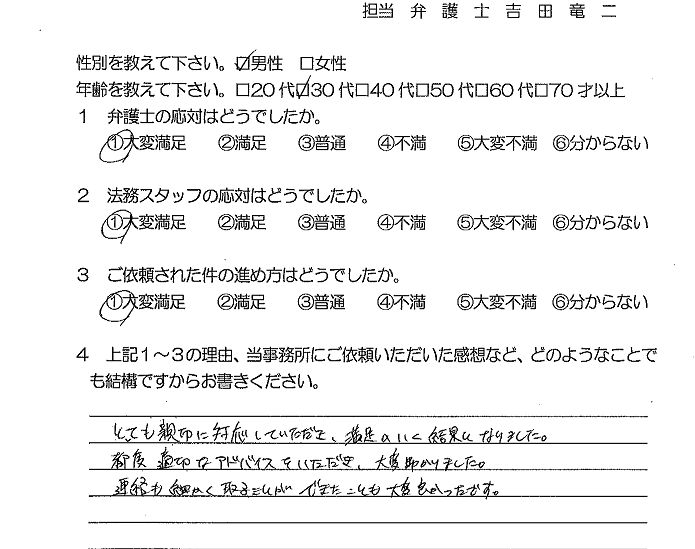 担当 弁 護 士 吉 田 竜 二
性別を教えて下さい。☑男性 □女性
年齢を教えて下さい。□20代☑30代□40代□50代□60代□70才以上
1 弁護士の応対はどうでしたか。
①大変満足 ②満足 ③普通 ④不満 ⑤大変不満 ⑥分からない
2 法務スタッフの応対はどうでしたか。
①大変満足 ②満足 ③普通 ④不満 ⑤大変不満 ⑥分からない
3 ご依頼された件の進め方はどうでしたか。
①大変満足 ②満足 ③普通 ④不満 ⑤大変不満 ⑥分からない
4 上記1～3の理由、当事務所にご依頼いただいた感想など、どのようなことで
も結構ですからお書きください。
とても親切に対応していただき、満足のいく結果になりました。
都度適切なアドバイスをいただき、大変助かりました。
連絡も細かく取ることができたことも大変良かったです。